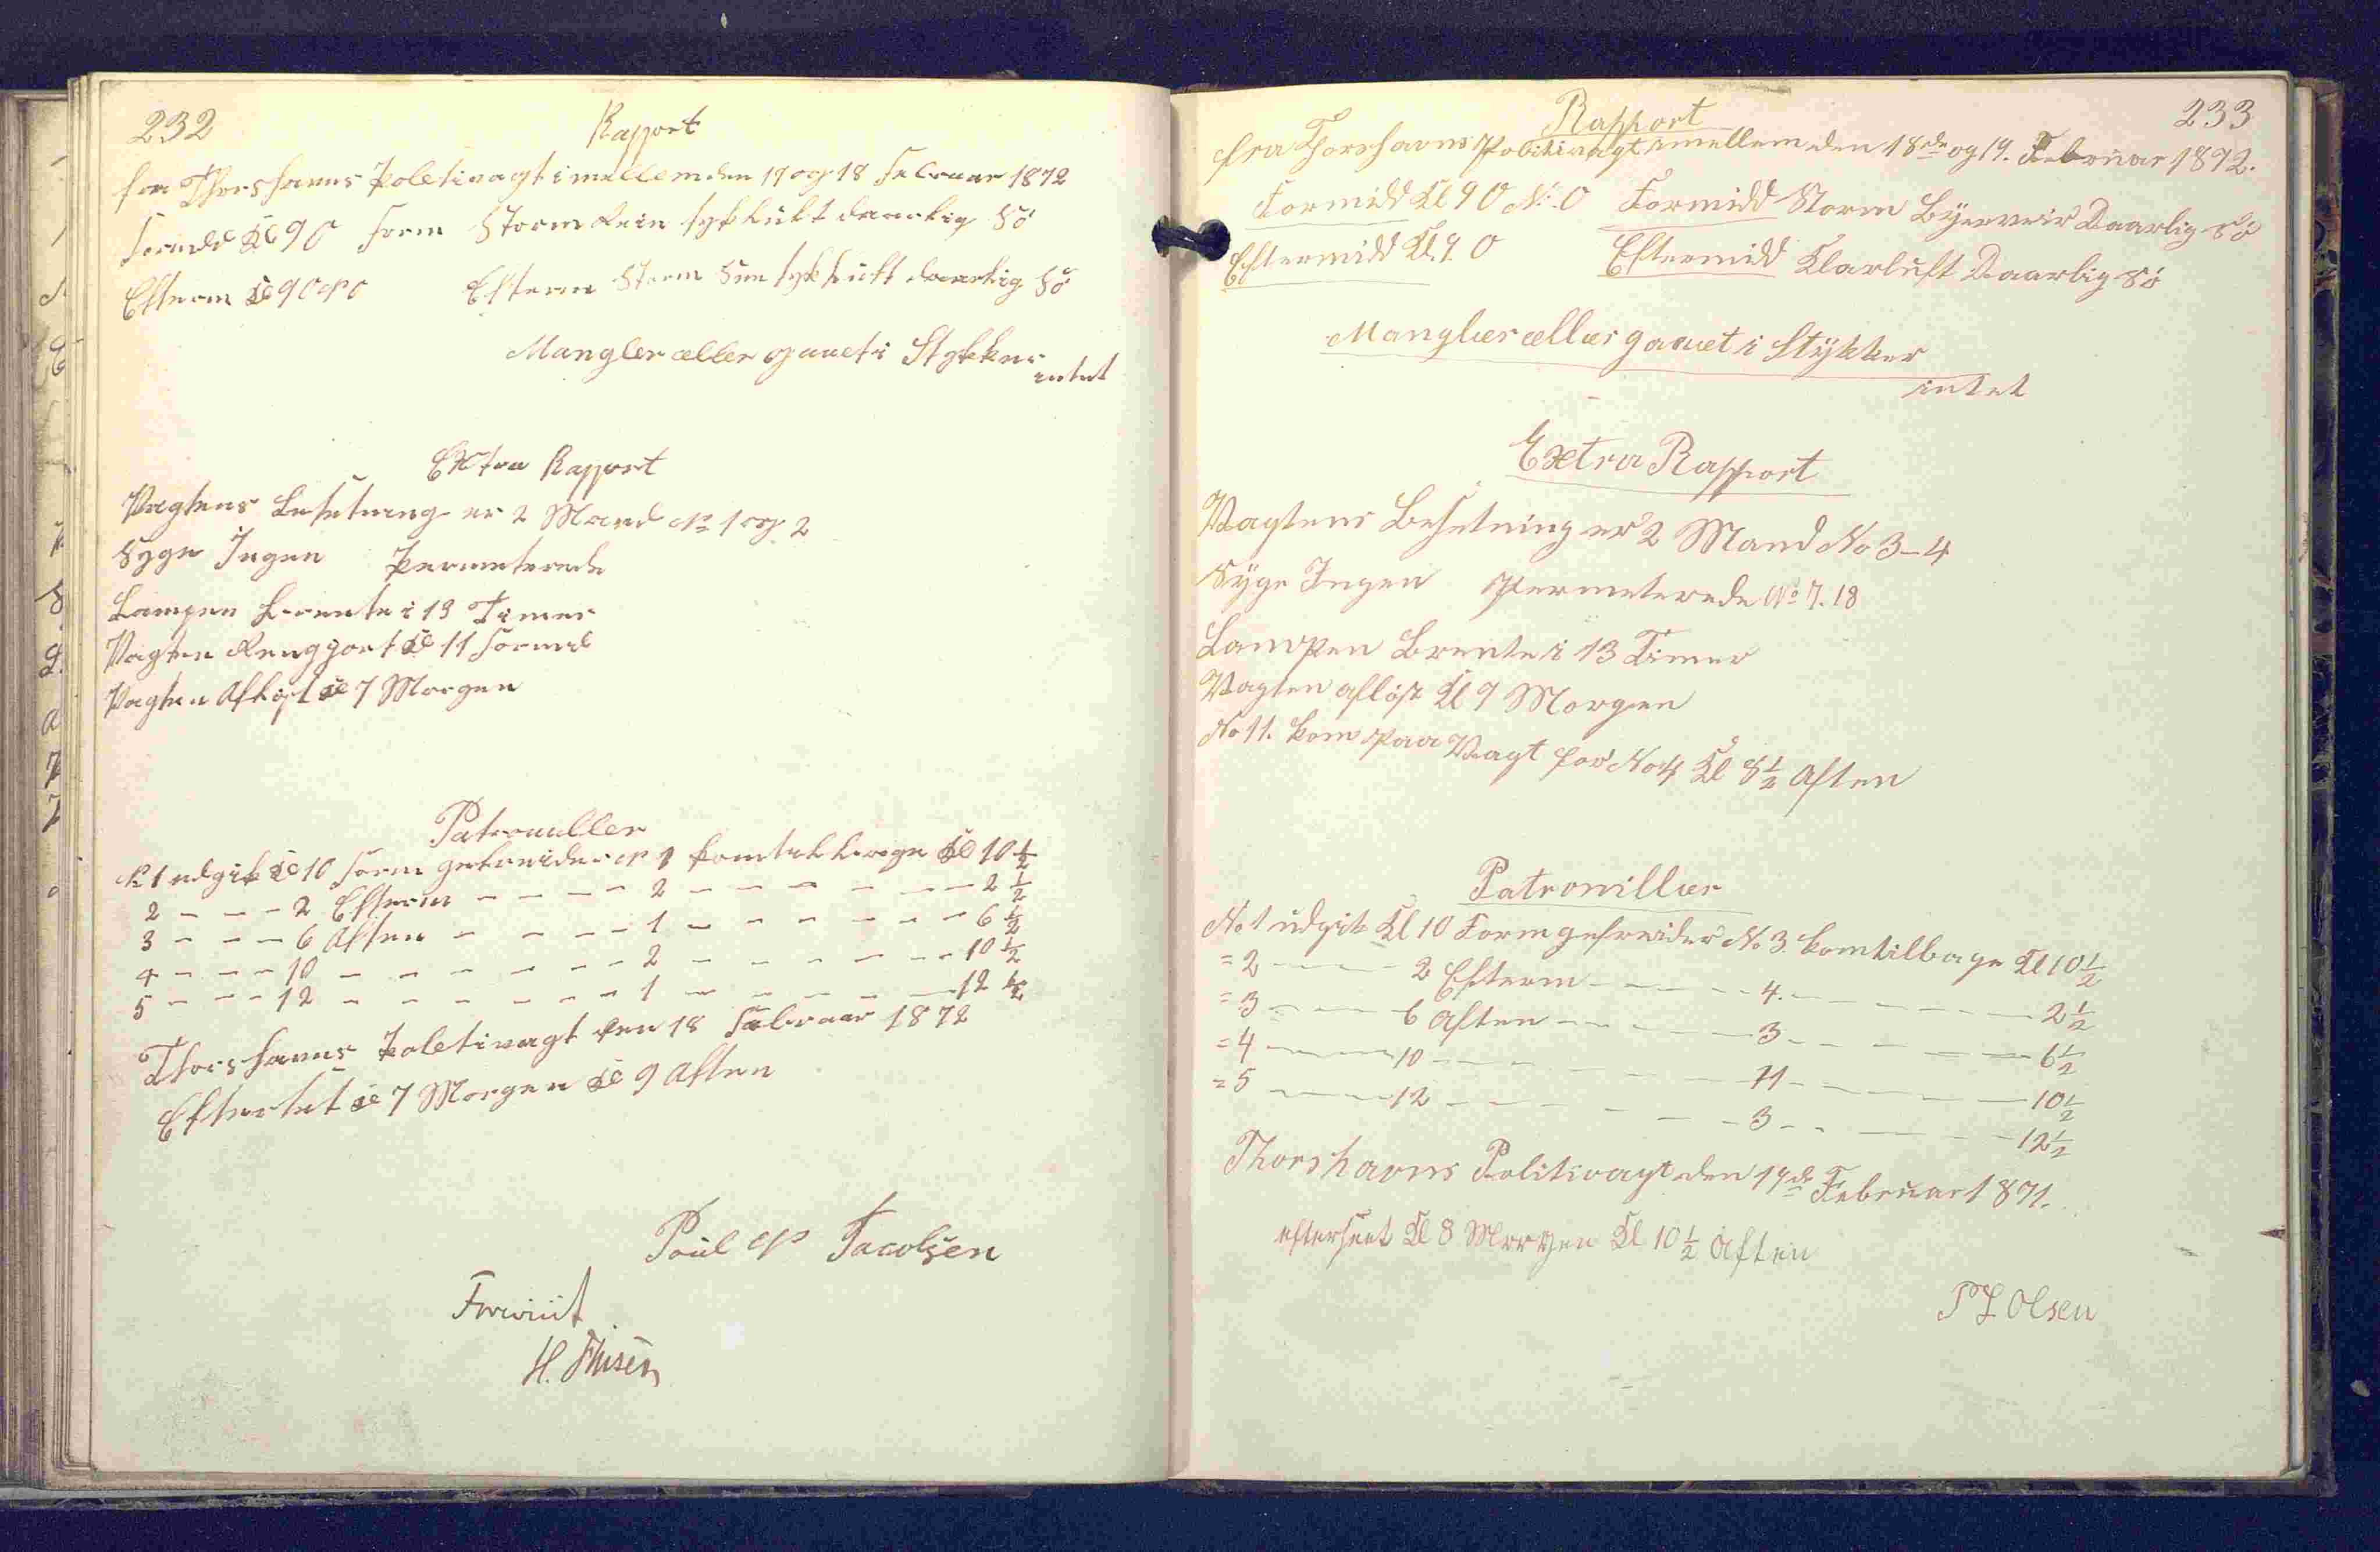 232
Rapport
fra Thorshavns Poletivagt imellem den 17 og 18 Februar 1872
Formdd Kl 9 0 Form Storm Rein tyk luft daarlig Sö
Efterm Kl 9 0 N 0 Efterm Storm Sne tyk luft daarlig Sö
Mangler æller gaaet i Stykker
intet
Extra Rapport
Vagtens Besetning er 2 Mand No 1 og 2
Syge Ingen Permeterede
Lampen brente i 13 Timer
Vagten Rengjort Kl 11 Formd
Vagten Aflöst Kl 7 Morgen
Patrouller
No 1 udgik Kl 10 Form gefreider N 1 kom tilbage Kl 10 1/2
2 - - - 2 Efterm - - - - 2 - - - - - - 2 1/2
3 - - - 6 Aften - - - - 1 - - - - - - 6 1/2
4 - - - 10 - - - - - - 2 - - - - - - 10 1/2
5 - - - 12 - - - - - - 1 - - - - - 12 1/2
Thorshavns Poletivagt den 18 Februar 1872
Efterset Kl 7 Morgen Kl 9 Aften
Poul N Jacobsen
Forevist
H.
233
Rapport
fra Thorshavns Politivagt imellem den 18de og 19. Februar 1872.
Formidd Kl 9 0 N. 0 Formidd Storm Byerveir Daarlig Sö
Eftermidd Kl. 9. 0 Eftermidd Klarluft Daarlig Sö
Mangler æller gaaet i Stykker
intet
Extra Rapport
Vagtens Besetning er 2 Mand No 3-4
Syge Ingen Permeterede No 7. 18
Lampen Brente i 13 Timer
Vagten aflöst Kl 9 Morgen
No 11. kom paa Vagt for No 4 Kl 8 1/2 Aften
Patrouiller
No 1 udgik Kl 10 Form gefreider No 3. kom tilbage Kl 10 1/2
= 2 - - - 2 Efterm - - - - 4. - - - - - - 2 1/2
= 3 - - - 6 Aften - - - - 3 - - - - - 6 1/2
= 4 - - - 10 - - - - - - 11 - - - - - 10 1/2
= 5 - - - 12 - - - - - - 3 - - - - - 12 1/2
Thorshavns Politivagt den 19de Februar 1871.
efterseet Kl 8 Morgen Kl 10 1/2 Aften
Olsen